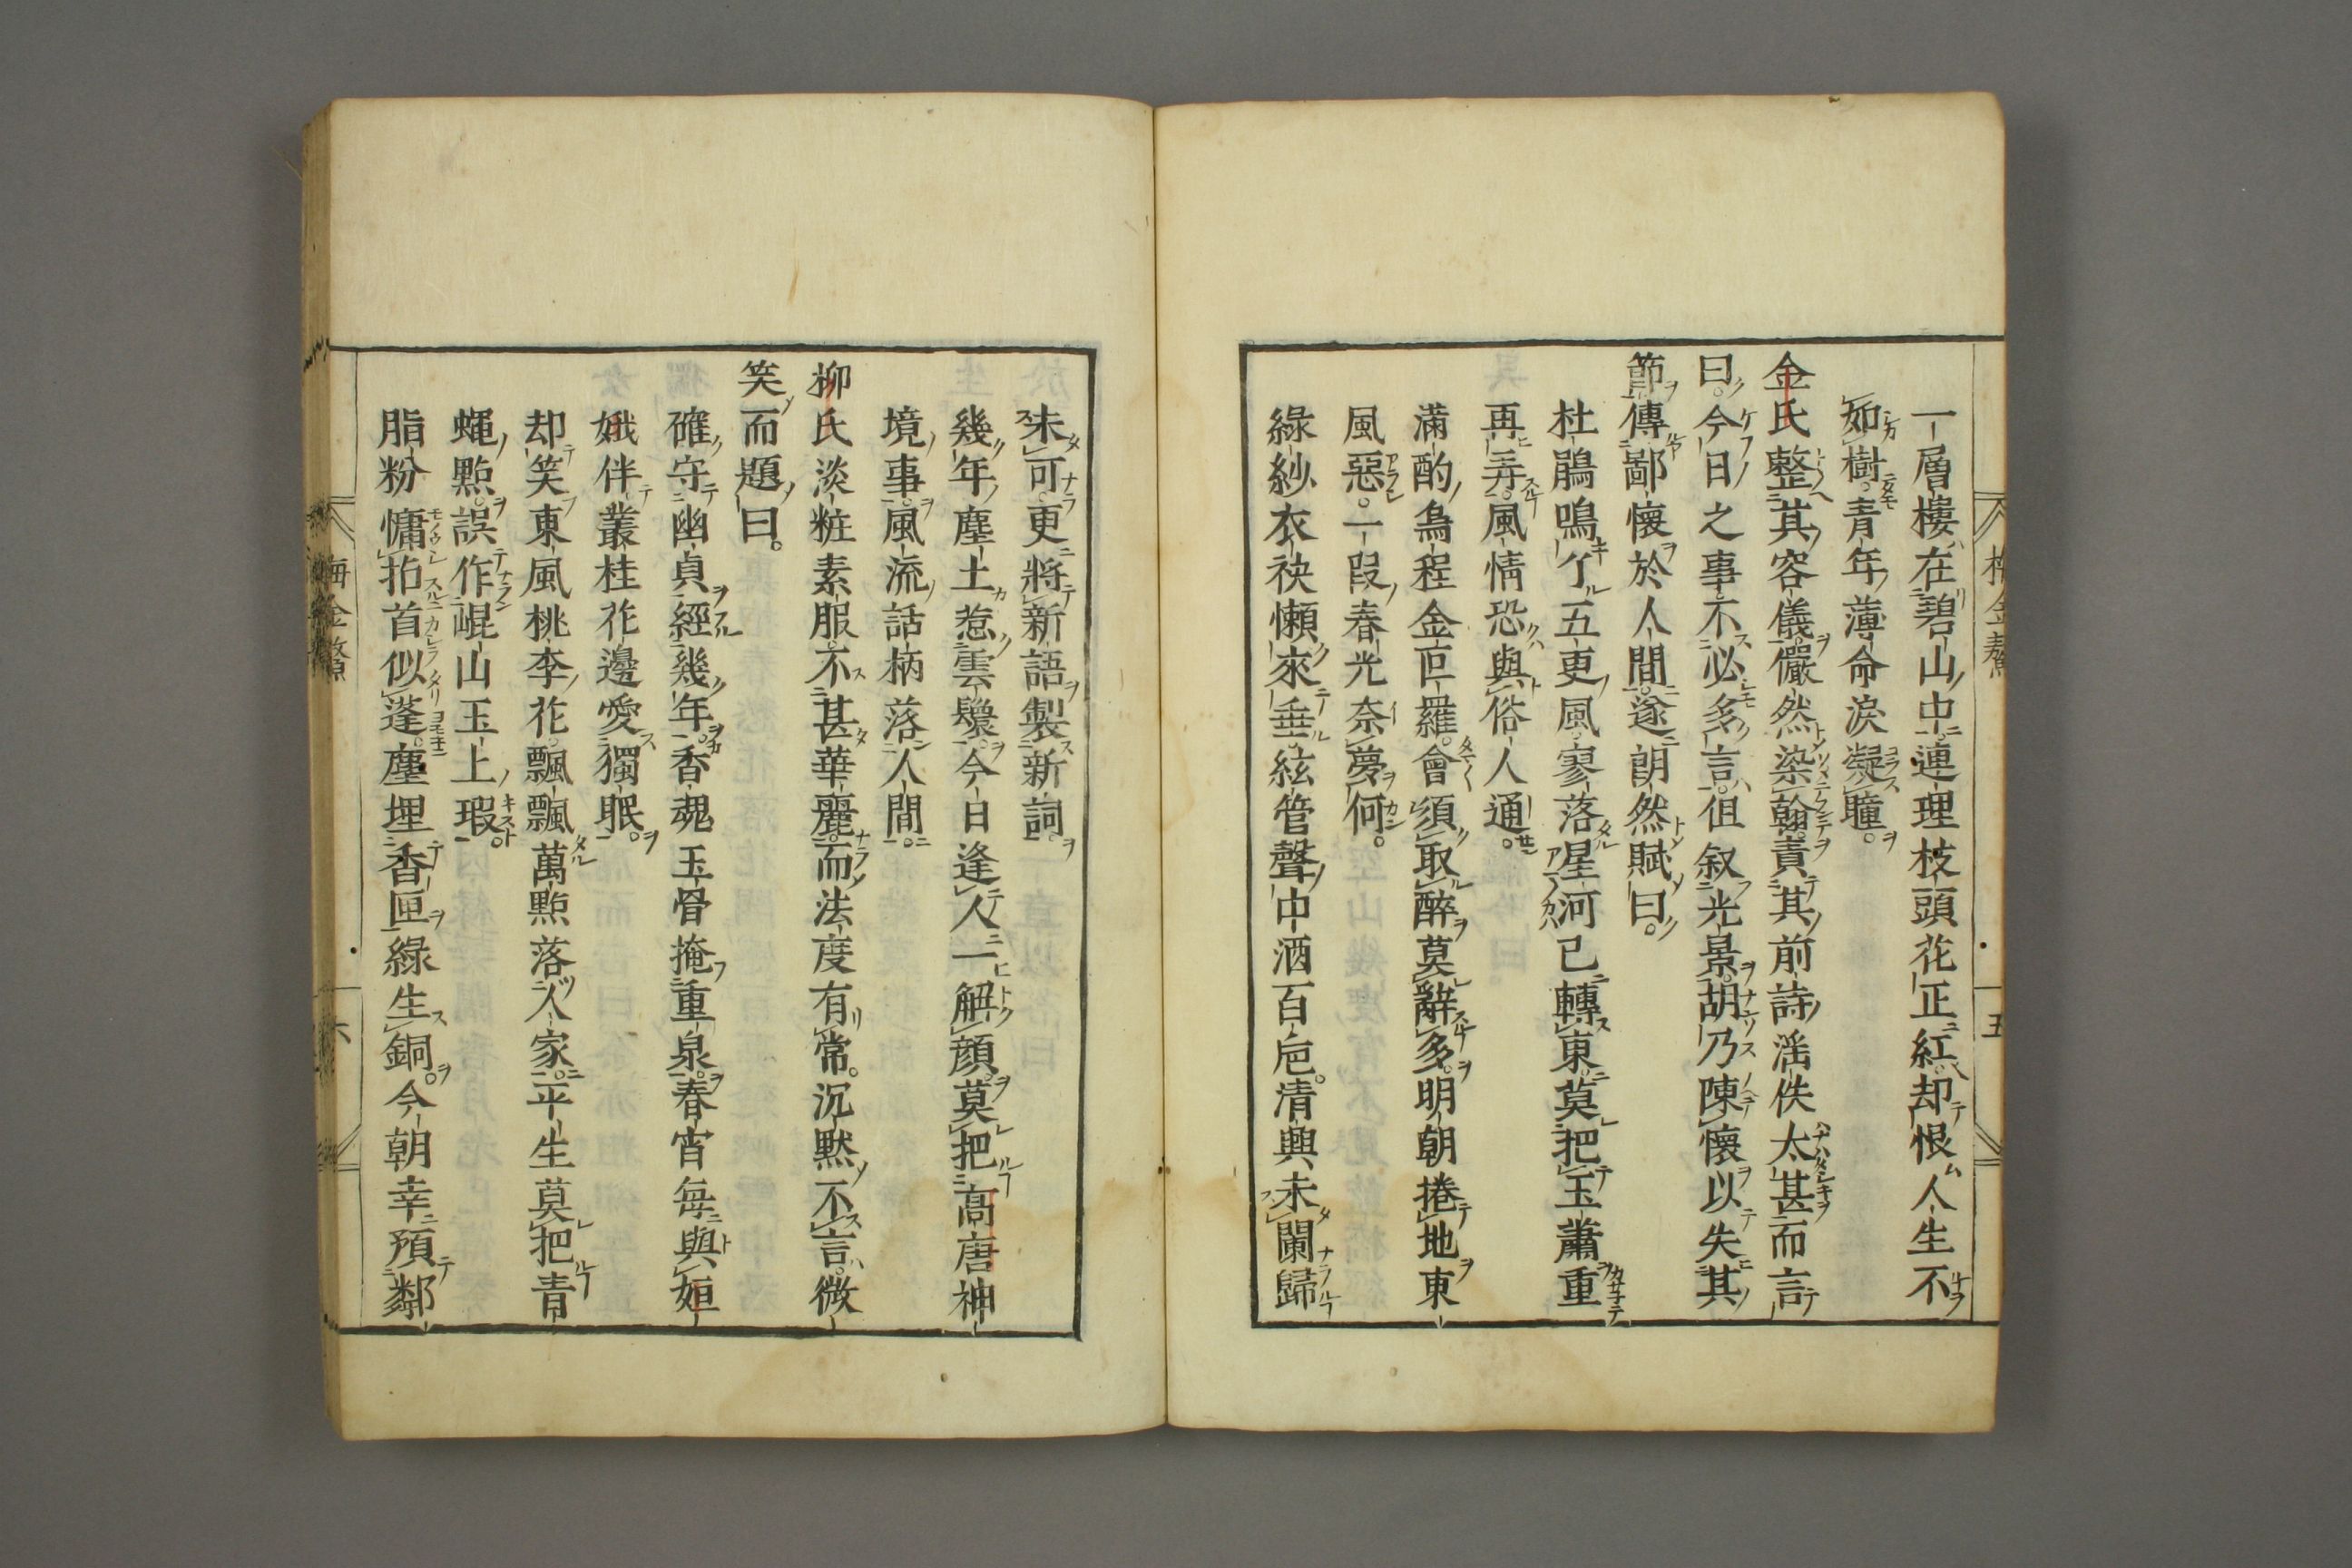 一層樓在碧山中連理枝頭花正紅却恨人生不
如樹青年薄命淚凝瞳
金氏整其容儀儼然染翰責其前詩淫佚太甚而言
曰今日之事不必多言但叙光景胡乃陳懷以失其
節傳鄙懷於人間遂朗然賦曰
杜鵑鳴了五更風寥落星河已轉東莫把玉蕭重
再弄風情恐與俗人通
滿酌烏程金叵羅會須取醉莫辭多明朝捲地東
風惡一段春光奈夢何
綠紗衣袂懶來垂絃管聲中酒百巵清興未闌歸
未可更將新語製新詞
幾年塵土惹雲鬟今日逢人一解顔莫把高唐神
境事風流話柄落人間
柳氏淡粧素服不甚華麗而法度有常沉默不言微
笑而題曰
確守幽貞經幾年香魂玉骨掩重泉春宵每與姮
娥伴叢桂花邊愛獨眠
却笑東風桃李花飄飄萬點落人家平生莫把青
蠅點誤作崐山玉上瑕
脂粉慵拈首似蓬塵埋香匣綠生銅今朝幸預鄰
梅金鰲
五
六